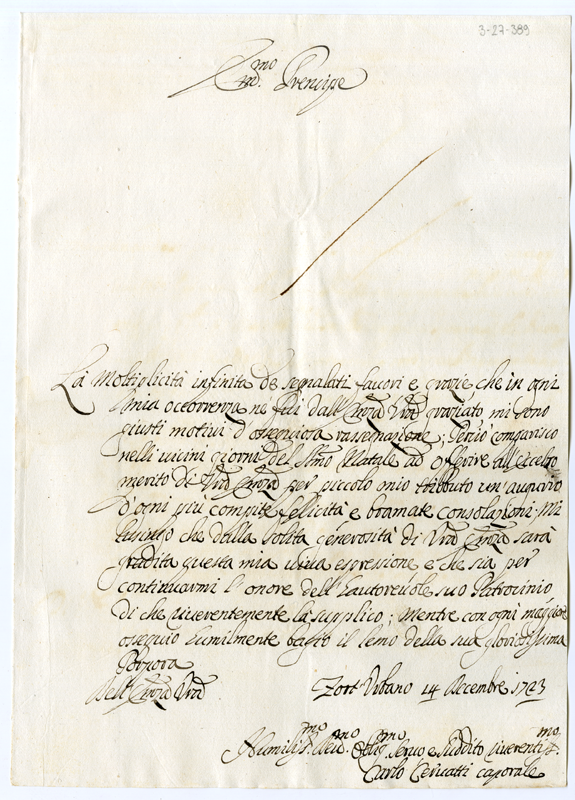 3-27-389
Em.mo Prencipe
La Moltiplicità infinita de segnalati favori e grazie che in ogni
mia occorrenza ne fui dall'Emza Vra graziato mi sono
giusti motivi d'ossequiosa rassegnazione; Perciò comparisco
nelli vicini giorni del SSmo Natale ad offerire all'eccelso
merito di Vra Emza per piccolo mio tributo un'augurio
d'ogni più compite felicità e bramate consolazioni. Mi
lusingo che dalla solita generosità di Vra Emza sarà
gradita questa mia viva espressione e che sia per
continuarmi l'onore dell'autorevole suo Patrocinio
di che riverentemente la supplico; Mentre con ogni maggiore
ossequio umilmente bagio il lemo della sua gloriosissima
Porpora
Dell'Emza Vra
Fort Urbano 14 Decembre 1723
Humiliss.mo Dev.mo Oblig.mo Servo e Suddito riverentis.mo
Carlo Cervatti caporale